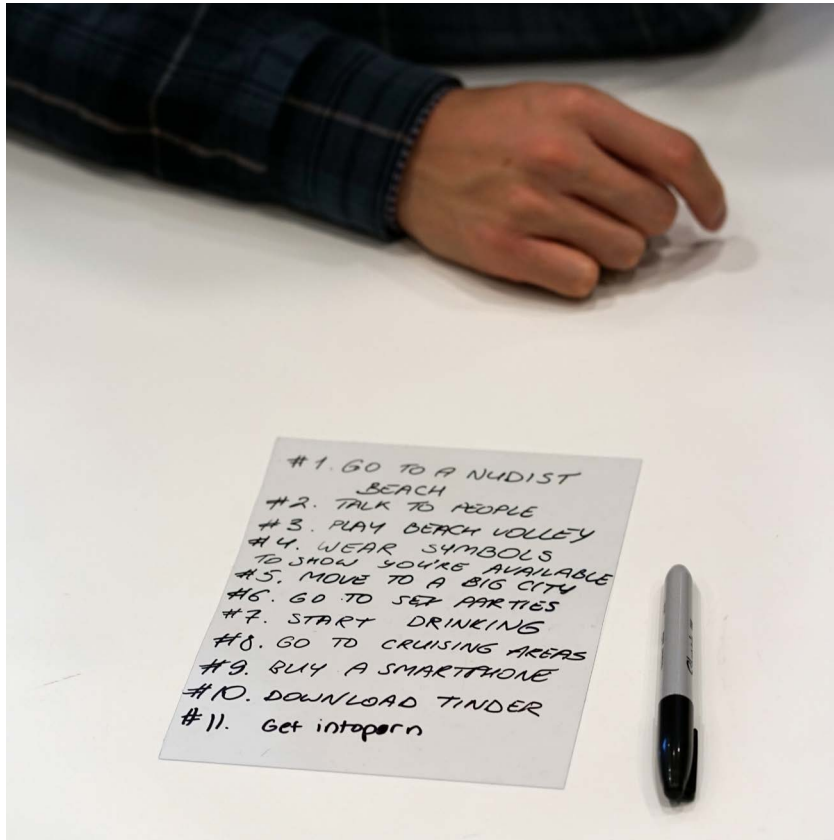 #1. GO TO A NUDIST
BEACH
#2. TALK TO PEOPLE
#3. PLAY BEACH VOLLEY
#4. WEAR SYMBOLS
TO SHOW YOU'RE AVAILABLE
#5. MOVE TO A BIG CITY
#6. GO TO SEX PARTIES
#7. START DRINKING
#8. GO TO CRUISING AREAS
#9. BUY A SMARTPHONE
#10. DOWNLOAD TINDER
#11. Get into porn